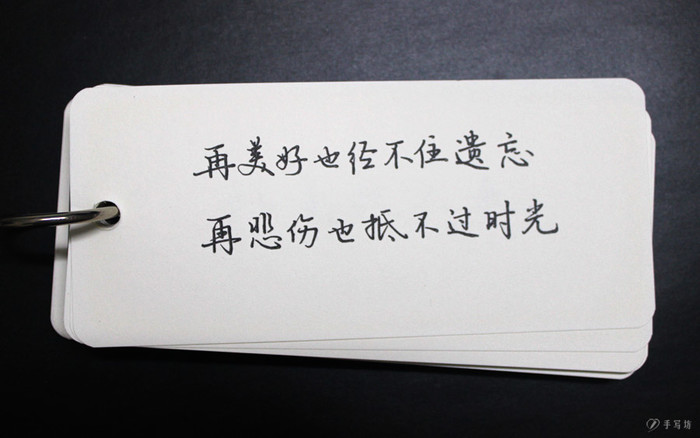 再美好也经不住遗忘
再悲伤也抵不过时光
手写坊